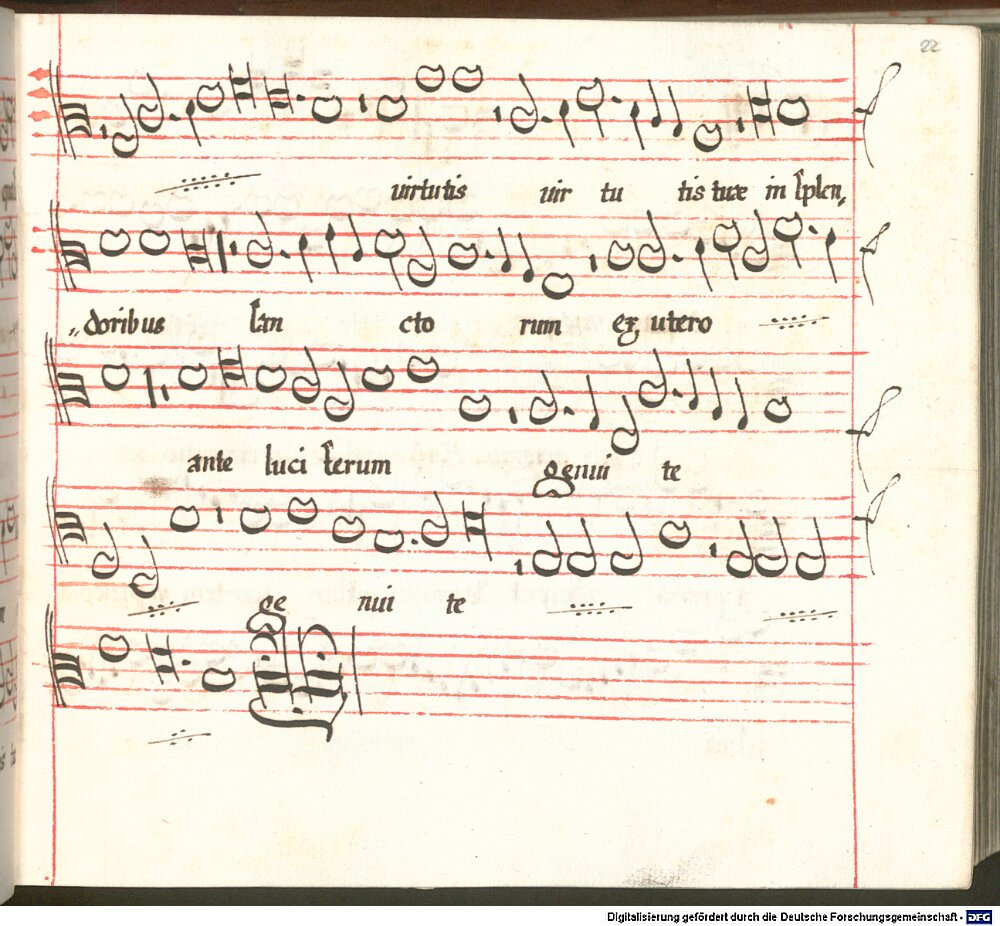 22
virtutis vir tu tis tuæ in splen,,
,,doribus san cto rum ex utero
ante luci ferum genui te
ge nui te
Digitalisierung gefördert durch die Deutsche Forschungsgemeinschaft - DFG